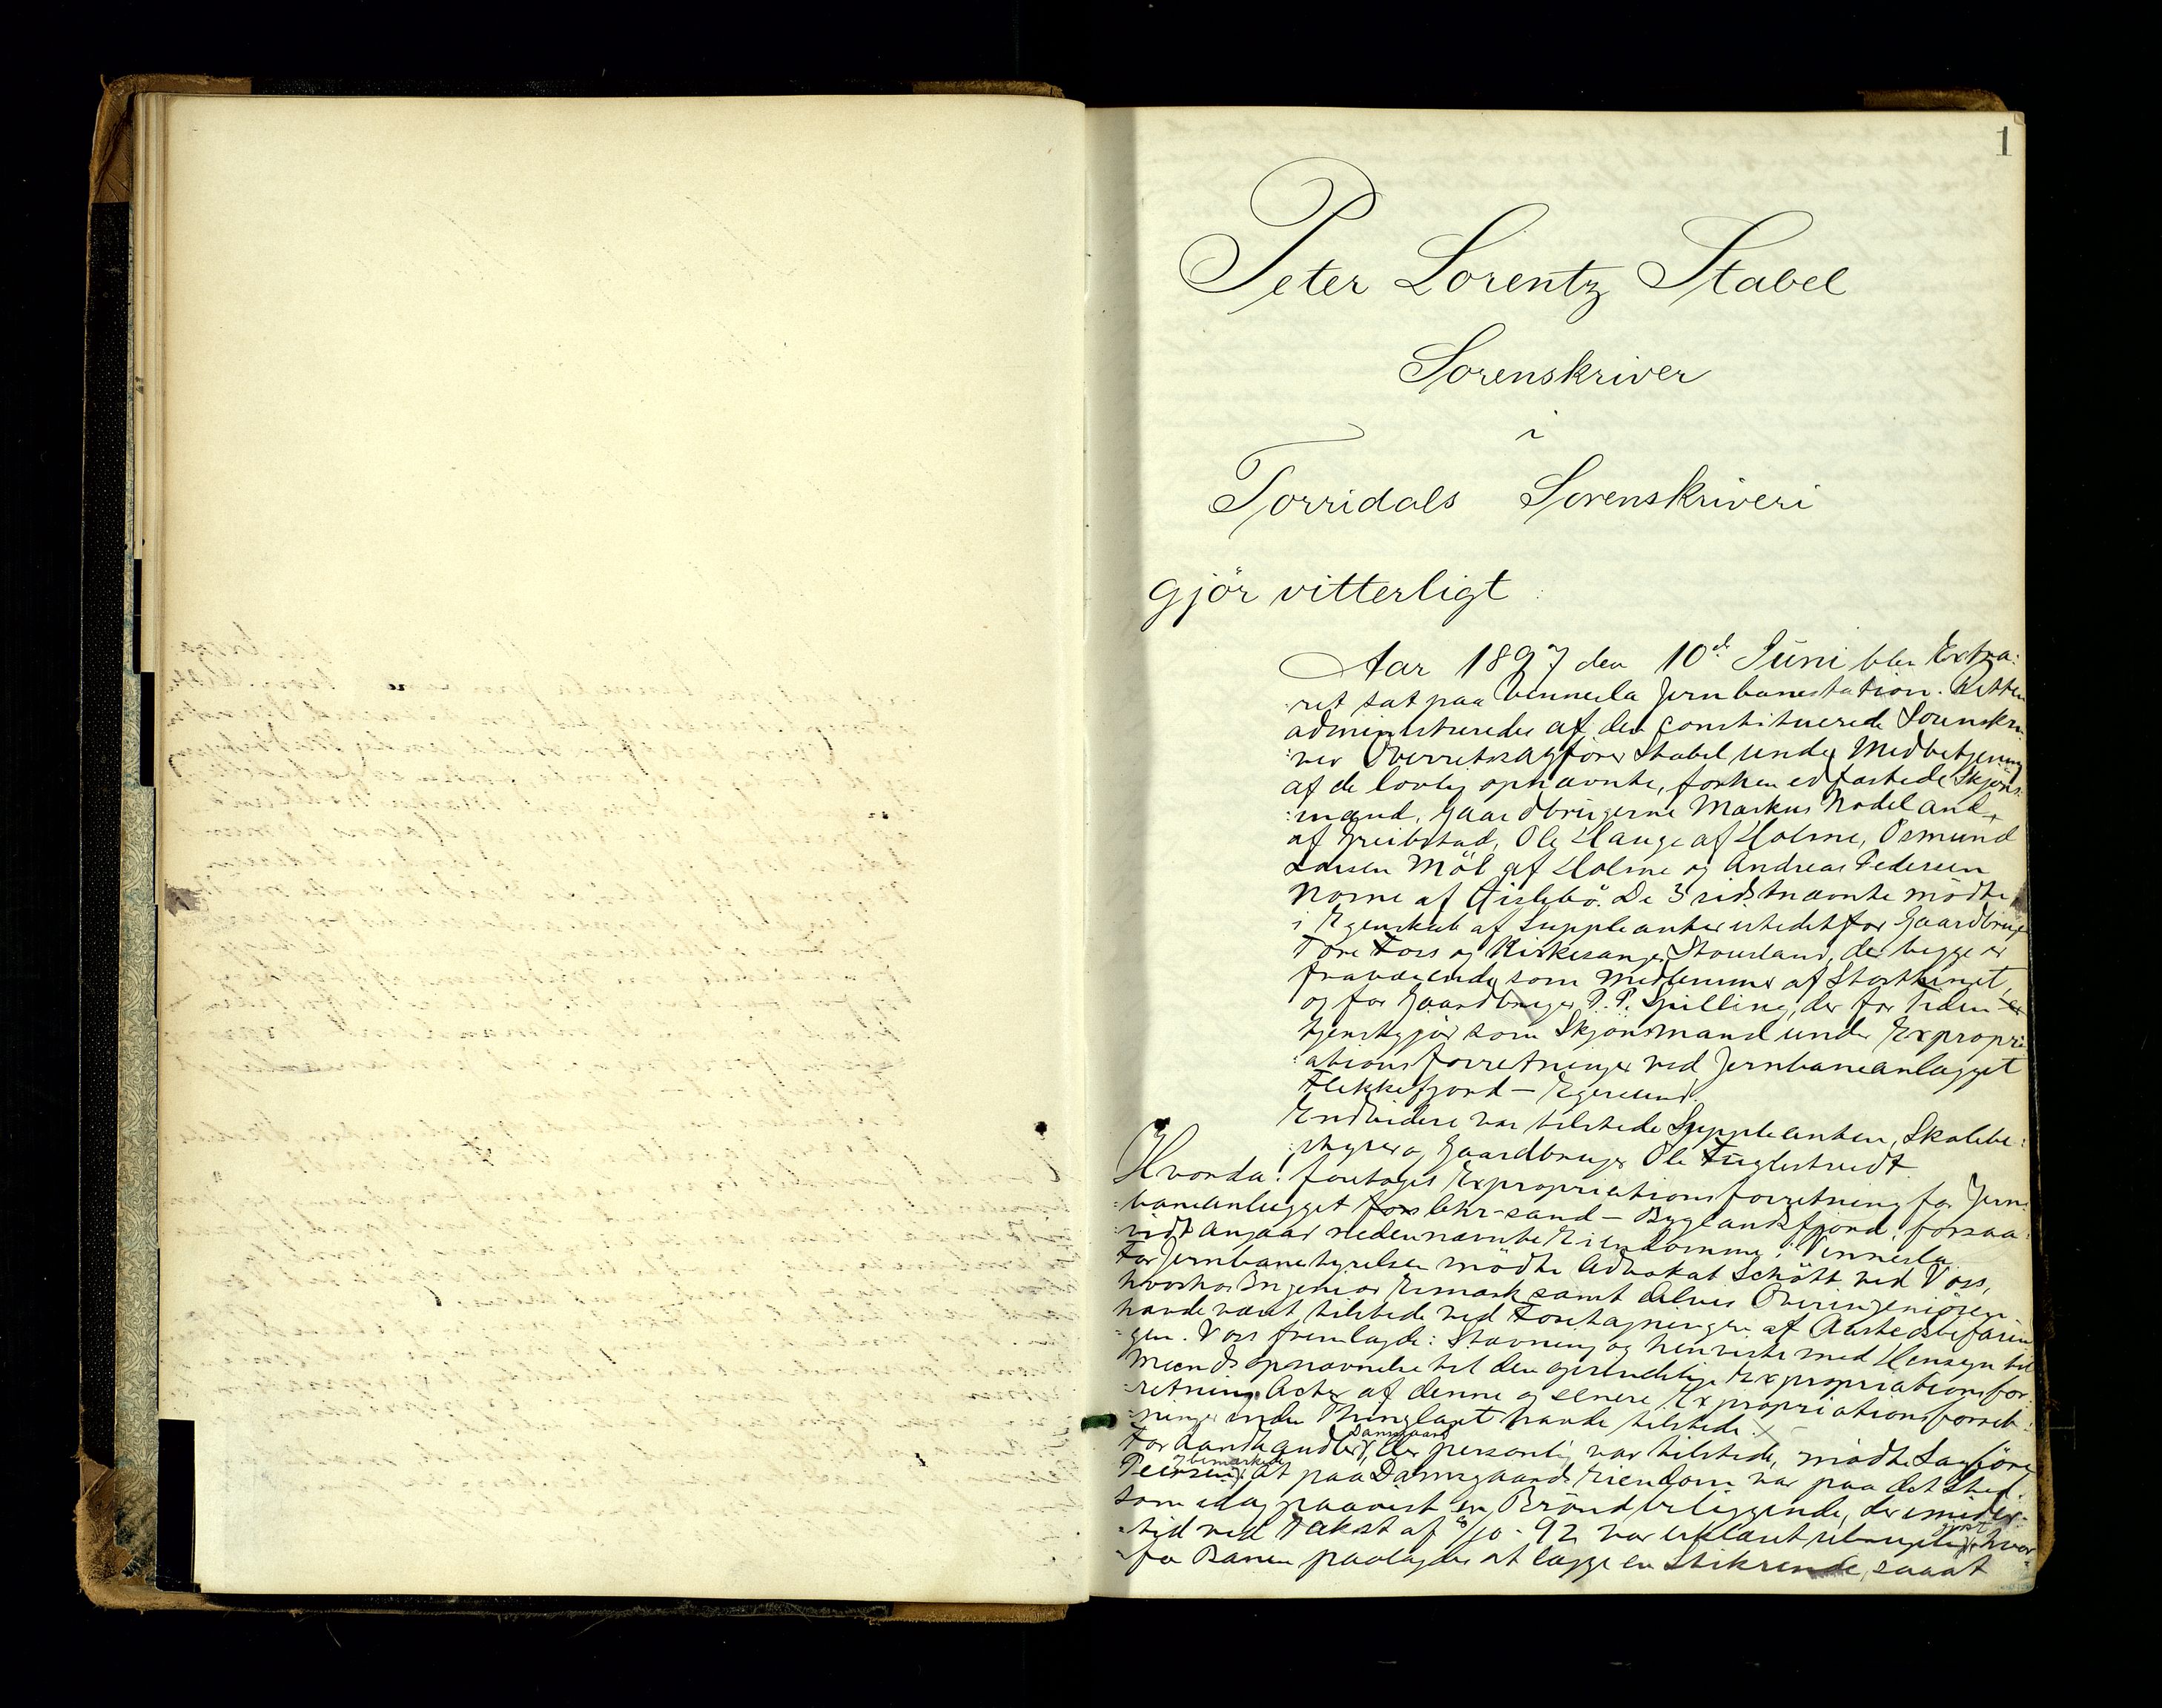 1
Peter Lorentz Stabel
Sorenskriver
i
Torridals Sorenskriveri
gjör vitterligt
Aar 1897 den 10de Juni blev Extra-
ret sat paa Vennesla Jernbanestation. Retten
administreredes af den constituerede Sorenskri-
ver Overretssagförer Stabel under Medbetjening
af de lovlig opnævnte, forhen edfæstede Skjöns-
mænd, Gaardbrugerne Markus Nodeland
af Greibstad, Ole Hauge af Holme, Osmund
Larsen Möl af Holme og Andreas Pedersen
Norne af Öislebö. De 3 sidstnævnte mödte
i Egenskab af Suppleanter istedetfor Gaardbruger
Tore Foss og Kirkesanger Stousland, der begge er
fraværende som Medlemmer af Storthinget,
og for Gaardbruger P. P. Spilling, der for Tiden
tjenstgjör som Skjönsmand under Expropri-
ationsforretninger ved Jernbaneanlægget
Flekkefjord - Egersund.
Endvidere var tilstede Suppleanten, Skolebe-
styrer og Gaardbruger Ole Fuglestvedt
Hvorda: foretoges Expropriationsforretning for Jern-
baneanlægget Chr-sand - Byglandsfjord, forsaa-
vidt angaar nedennævnte Eiendomme i Vennesla.
For Jernbanestyrelsen mödte Advokat Schött ved Voss,
hvorhos Ingeniör samt delvis Overingeniören
havde været tilstede ved Foretagningen af Aastedsbefarin-
gen. Voss fremlagde: Stævning og henviste med Hensyn til
Mændsopnævnelse til den oprindelige Expropriationsfor-
retning. Acter af denne og senere Expropriationsforret-
ninger inden Thinglaget havde tilstede.
For Landhandler Damsgaard, der personlig var tilstede, mödte Sagförer
Peersen og bemærkede at paa Damsgaards Eiendom var paa det Sted
som idag paavist en Brönd beliggende, der imidler-
tid ved Takst af 8/10 - 92 var erklæret ubrugelig gjort hvor-
for Banen paalagdes at lægge en Stikrende, saaat